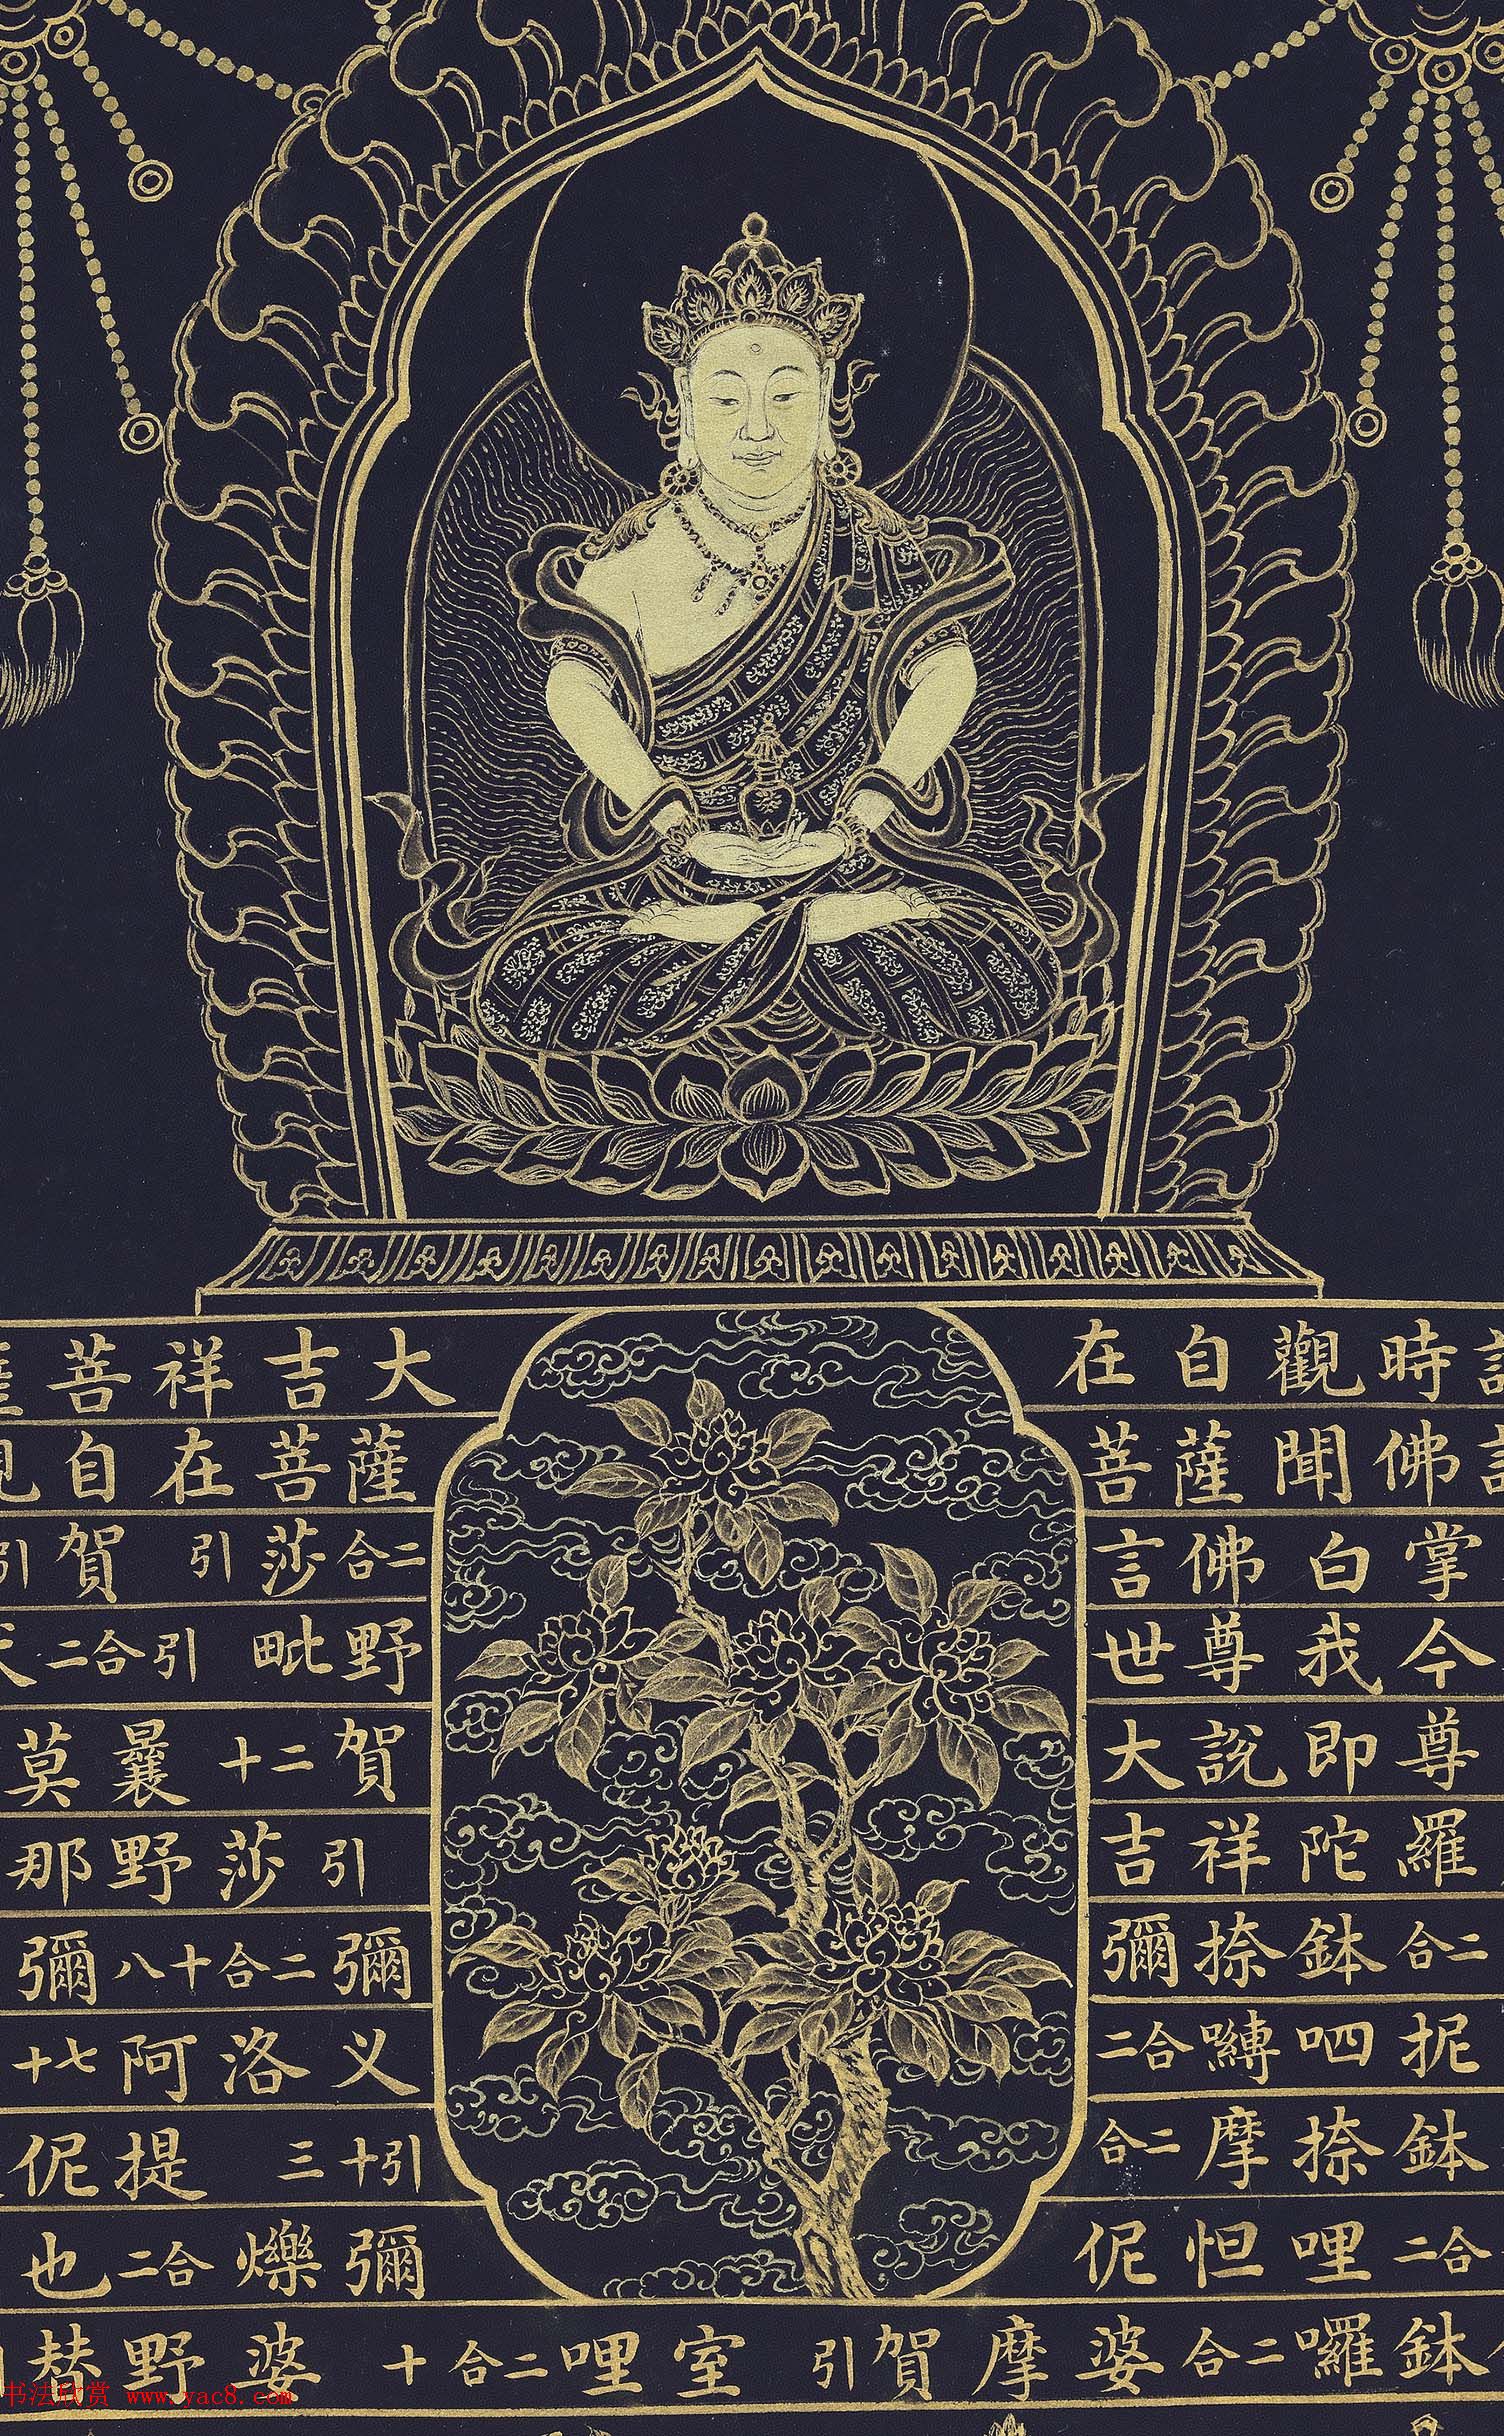 時觀自在
大吉祥菩
自在菩薩
菩薩聞佛
掌白佛言
二合莎引 賀
二合引 毗野
世尊我今
尊即說大
賀二十曩莫
那野莎引
吉祥陀羅
二合鉢捺彌
彌二合十八彌
十七阿洛义
二合嚩呬抳
鉢捺摩二合
引十三 提伲
也二合爍彌
伲怛哩二合
鉢囉二合婆摩賀引 室哩二合十 婆野替
书法欣赏 www.yac8.com